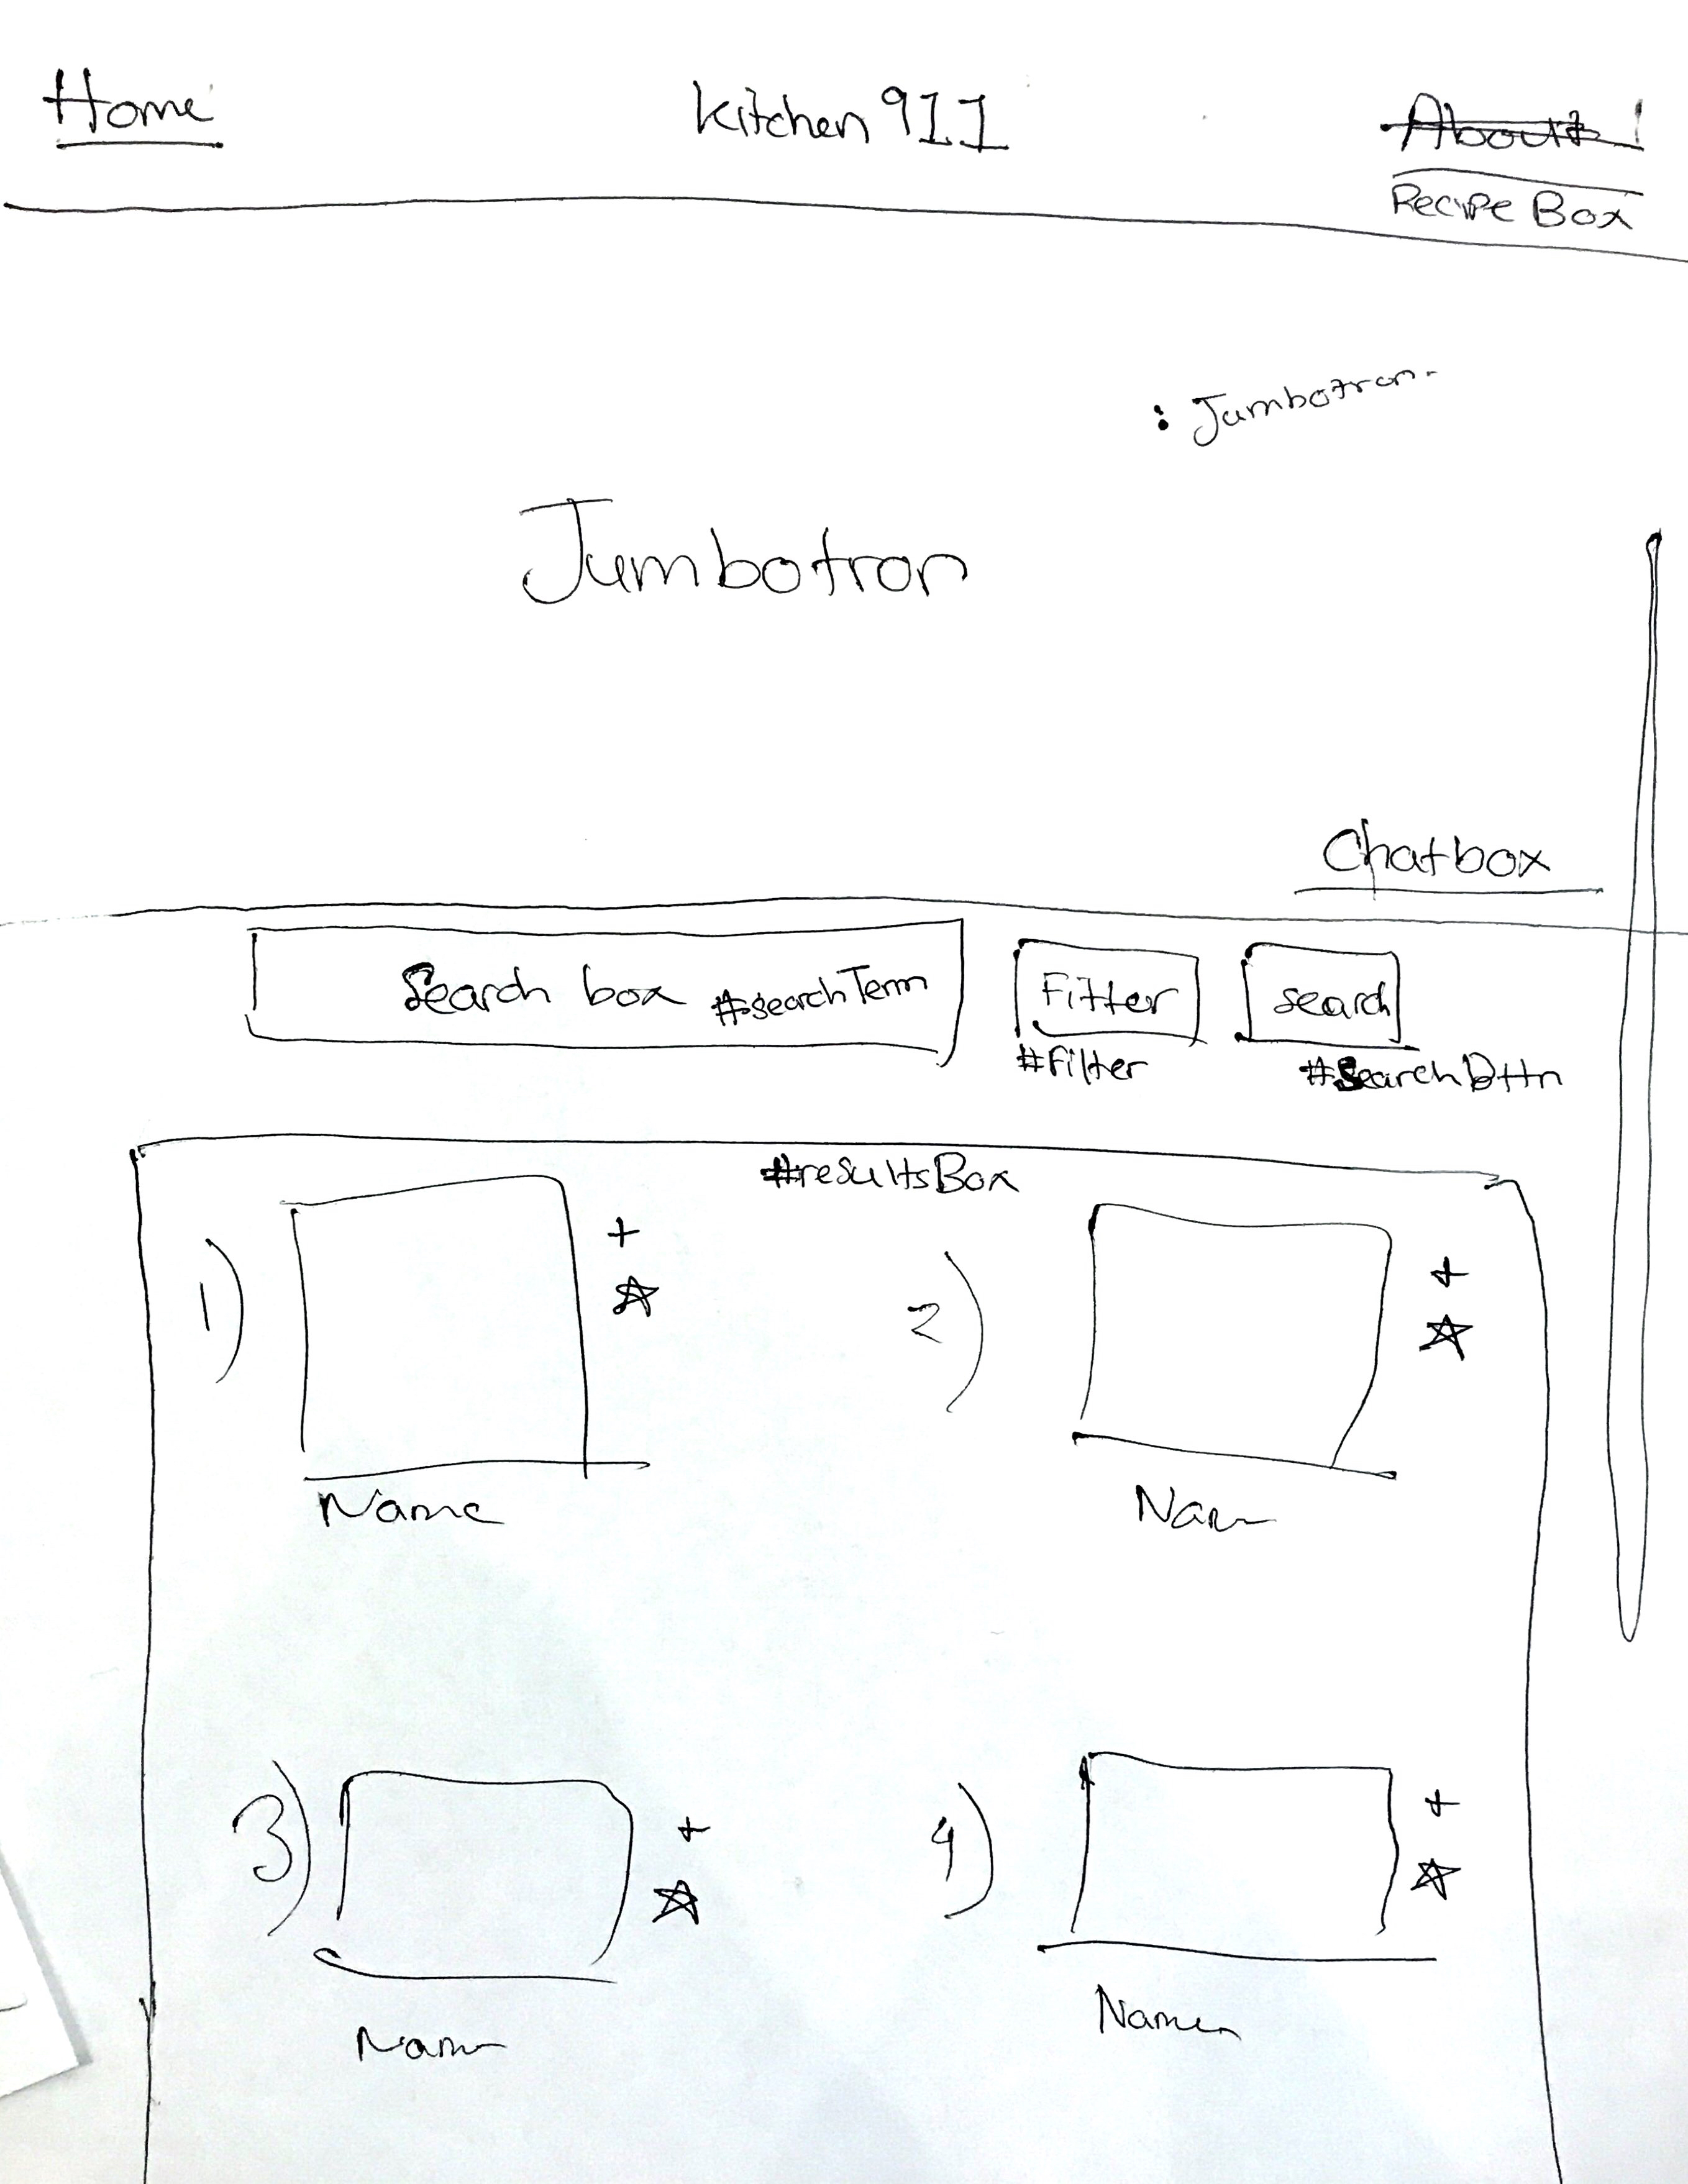 Home
Kitchen 911
About
Recipe Box
: Jumbotron.
Jumbotron
Chatbox
Search box #searchTerm
Filter
search
#filter
#SearchBttn
#resultsBox
1)
+
2)
+
Name
Nam
3)
+
4)
+
Nam
Name